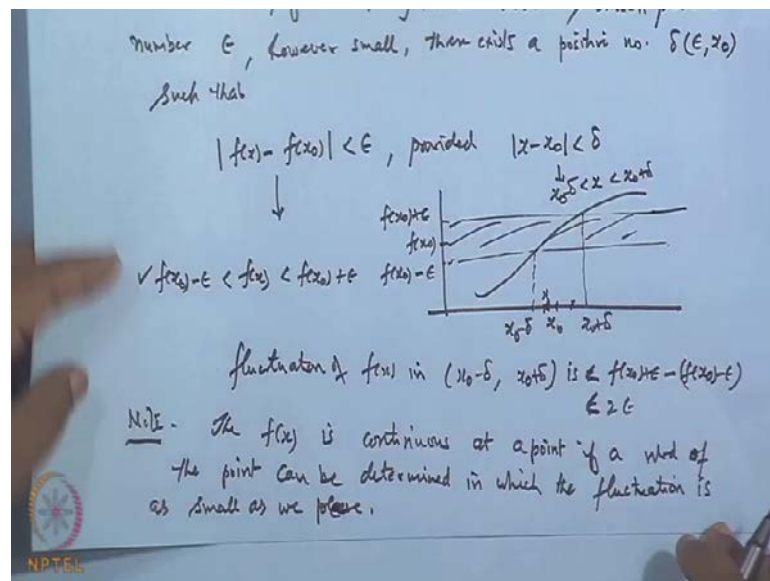 number ϵ, however small, there exists a positive no. δ(ϵ, x₀)
such that
|f(x) - f(x₀)| < ϵ, provided |x-x₀| < δ
x₀-δ < x < x₀+δ
f(x₀)+ϵ
f(x₀)
✓ f(x₀)-ϵ < f(x) < f(x₀)+ϵ f(x₀)-ϵ
x
x₀-δ x₀ x₀+δ
fluctuation of f(x) in (x₀-δ, x₀+δ) is ≤ f(x₀)+ϵ-(f(x₀)-ϵ)
≤ 2ϵ
Note. The f(x) is continuous at a point if a nbd of
the point can be determined in which the fluctuation is
as small as we please.
NPTEL